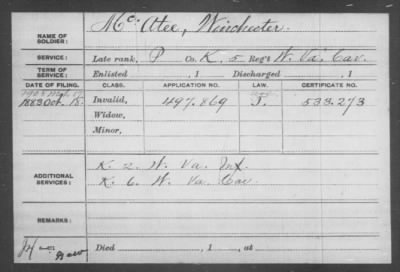 NAME OF SOLDIER: McAtee, Winchester.
SERVICE: Late rank, P Co. K. 5 Reg't W. Va. Cav.
TERM OF SERVICE: Enlisted , 1 Discharged , 1
DATE OF FILING. CLASS. APPLICATION NO. LAW. CERTIFICATE NO.
1883 Oct. 18. Invalid, 497.869 J. 533.273
Widow,
Minor,
ADDITIONAL SERVICES: K. 2. W. Va. Inf.
K. 6. W. Va. Cav.
REMARKS:
Died , 1 , at